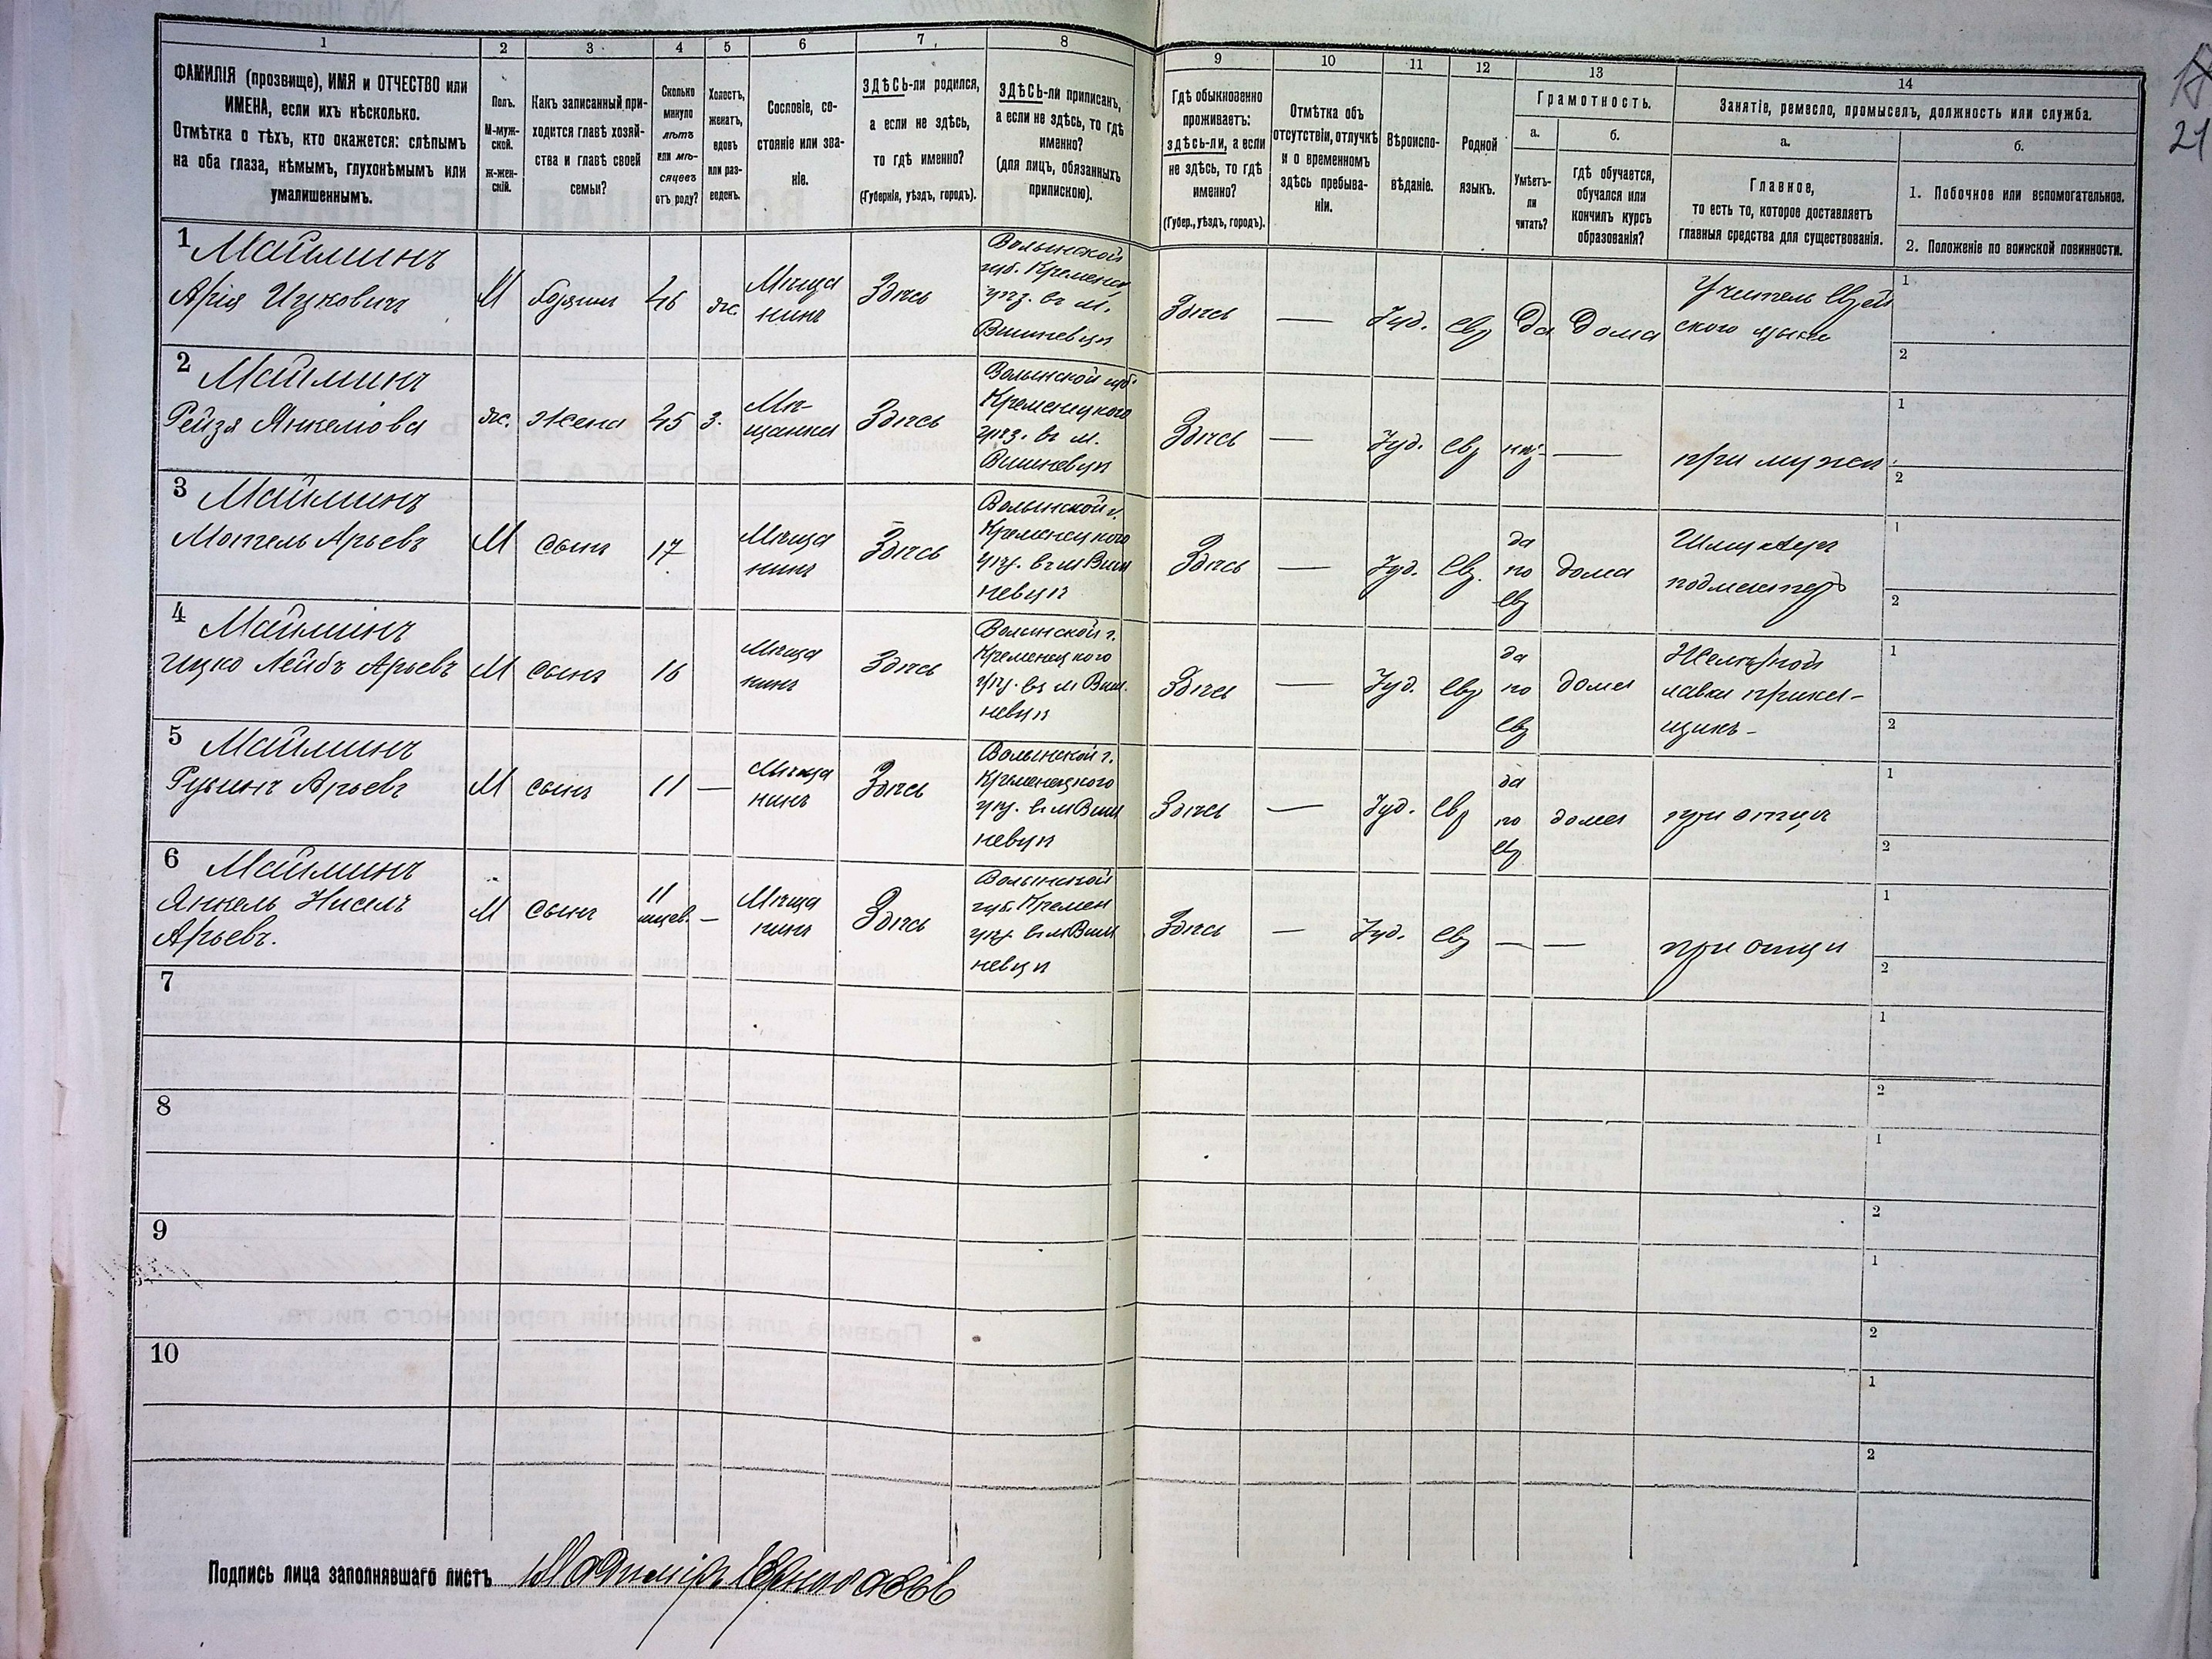 1 2 3 4 5 6 7 8 9 10 11 12 13 14
ФАМИЛІЯ (прозвище), ИМЯ и ОТЧЕСТВО или
ИМЕНА, если ихъ нѣсколько.
Отмѣтка о тѣхъ, кто окажется: слѣпымъ
на оба глаза, нѣмымъ, глухонѣмымъ или
умалишеннымъ.
Полъ.
М-муж-
ской.
ж-жен-
скій.
Какъ записанный при-
ходится главѣ хозяй-
ства и главѣ своей
семьи?
Сколько
минуло
лѣтъ
или мѣ-
сяцевъ
отъ роду?
Холостъ,
женатъ,
вдовъ
или раз-
веденъ.
Сословіе, со-
стояніе или зва-
ніе.
ЗДѢСЬ-ли родился,
а если не здѣсь,
то гдѣ именно?
(Губернія, уѣздъ, городъ).
ЗДѢСЬ-ли приписанъ,
а если не здѣсь, то гдѣ
именно?
(для лицъ, обязанныхъ
припискою).
Гдѣ обыкновенно
проживаетъ:
здѣсь-ли, а если
не здѣсь, то гдѣ
именно?
(Губер., уѣздъ, городъ).
Отмѣтка объ
отсутствіи, отлучкѣ
и о временномъ
здѣсь пребыва-
ніи.
Вѣроиспо-
вѣданіе.
Родной
языкъ.
Грамотность.
а.
Умѣетъ-
ли
читать?
б.
Гдѣ обучается,
обучался или
кончилъ курсъ
образованія?
Занятіе, ремесло, промыселъ, должность или служба.
а.
Главное,
то есть то, которое доставляетъ
главныя средства для существованія.
б.
1. Побочное или вспомогательное.
2. Положеніе по воинской повинности.
21
1 Маймминъ
Арія Ицковичъ
М
хозяинъ
46
ж
Мѣща
нинъ
Здѣсь
Волынской
губ. Кременец
уѣз. въ м.
Вишневцѣ
Здѣсь
—
Іуд.
евр
Да
Дома
Учитель еврей
ского языка
1
2
2 Маймминъ
Рейзя Янкеліова
ж.
жена
45
з.
Мѣ-
щанка
Здѣсь
Волынской губ.
Кременецкого
уѣз. въ м.
Вишневцѣ
Здѣсь
—
Іуд.
евр
нѣт
—
при мужѣ
1
2
3 Маймминъ
Мотель Арьевъ
М
сынъ
17
Мѣща
нинъ
Здѣсь
Волынской г.
Кременецкого
уѣз. въ м Виш
невцѣ
Здѣсь
—
Іуд.
евр.
да
по
евр
дома
подмастеръ
1
2
4 Маймминъ
Ицко Лейбъ Арьевъ
М
сынъ
16
Мѣща
нинъ
Здѣсь
Волынской г.
Кременецкого
уѣз. въ м Виш.
невцѣ
Здѣсь
—
Іуд.
евр
да
по
евр
дома
Желѣзной
лавки прика-
щикъ-
1
2
5 Маймминъ
Рувинъ Арьевъ
М
сынъ
11
—
Мѣща
нинъ
Здѣсь
Волынской г.
Кременецкого
уѣз. въ м Виш
невцѣ
Здѣсь
—
Іуд.
евр
да
по
евр
дома
при отцѣ
1
2
6 Маймминъ
Янкель Нисель
Арьевъ.
М
сынъ
11
мѣсяцев.
—
Мѣща
нинъ
Здѣсь
Волынской
губ. Кремен
уѣз. въ м Виш
невцѣ
Здѣсь
—
Іуд.
евр
—
—
при отцѣ
1
2
7
1
2
8
1
2
9
1
2
10
1
2
Подпись лица заполнявшаго листъ